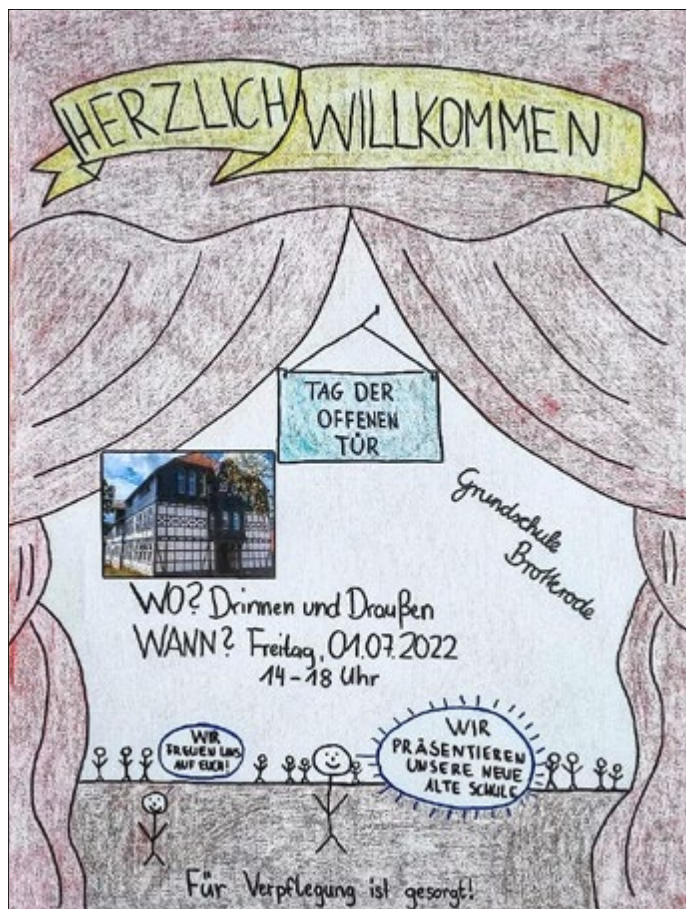 HERZLICH WILLKOMMEN
TAG DER
OFFENEN
TÜR
Grundschule
Brotterode
WO? Drinnen und Draußen
WANN? Freitag, 01.07.2022
14-18 Uhr
WIR
FREUEN UNS
AUF EUCH!
WIR
PRÄSENTIEREN
UNSERE NEUE
ALTE SCHULE
Für Verpflegung ist gesorgt!